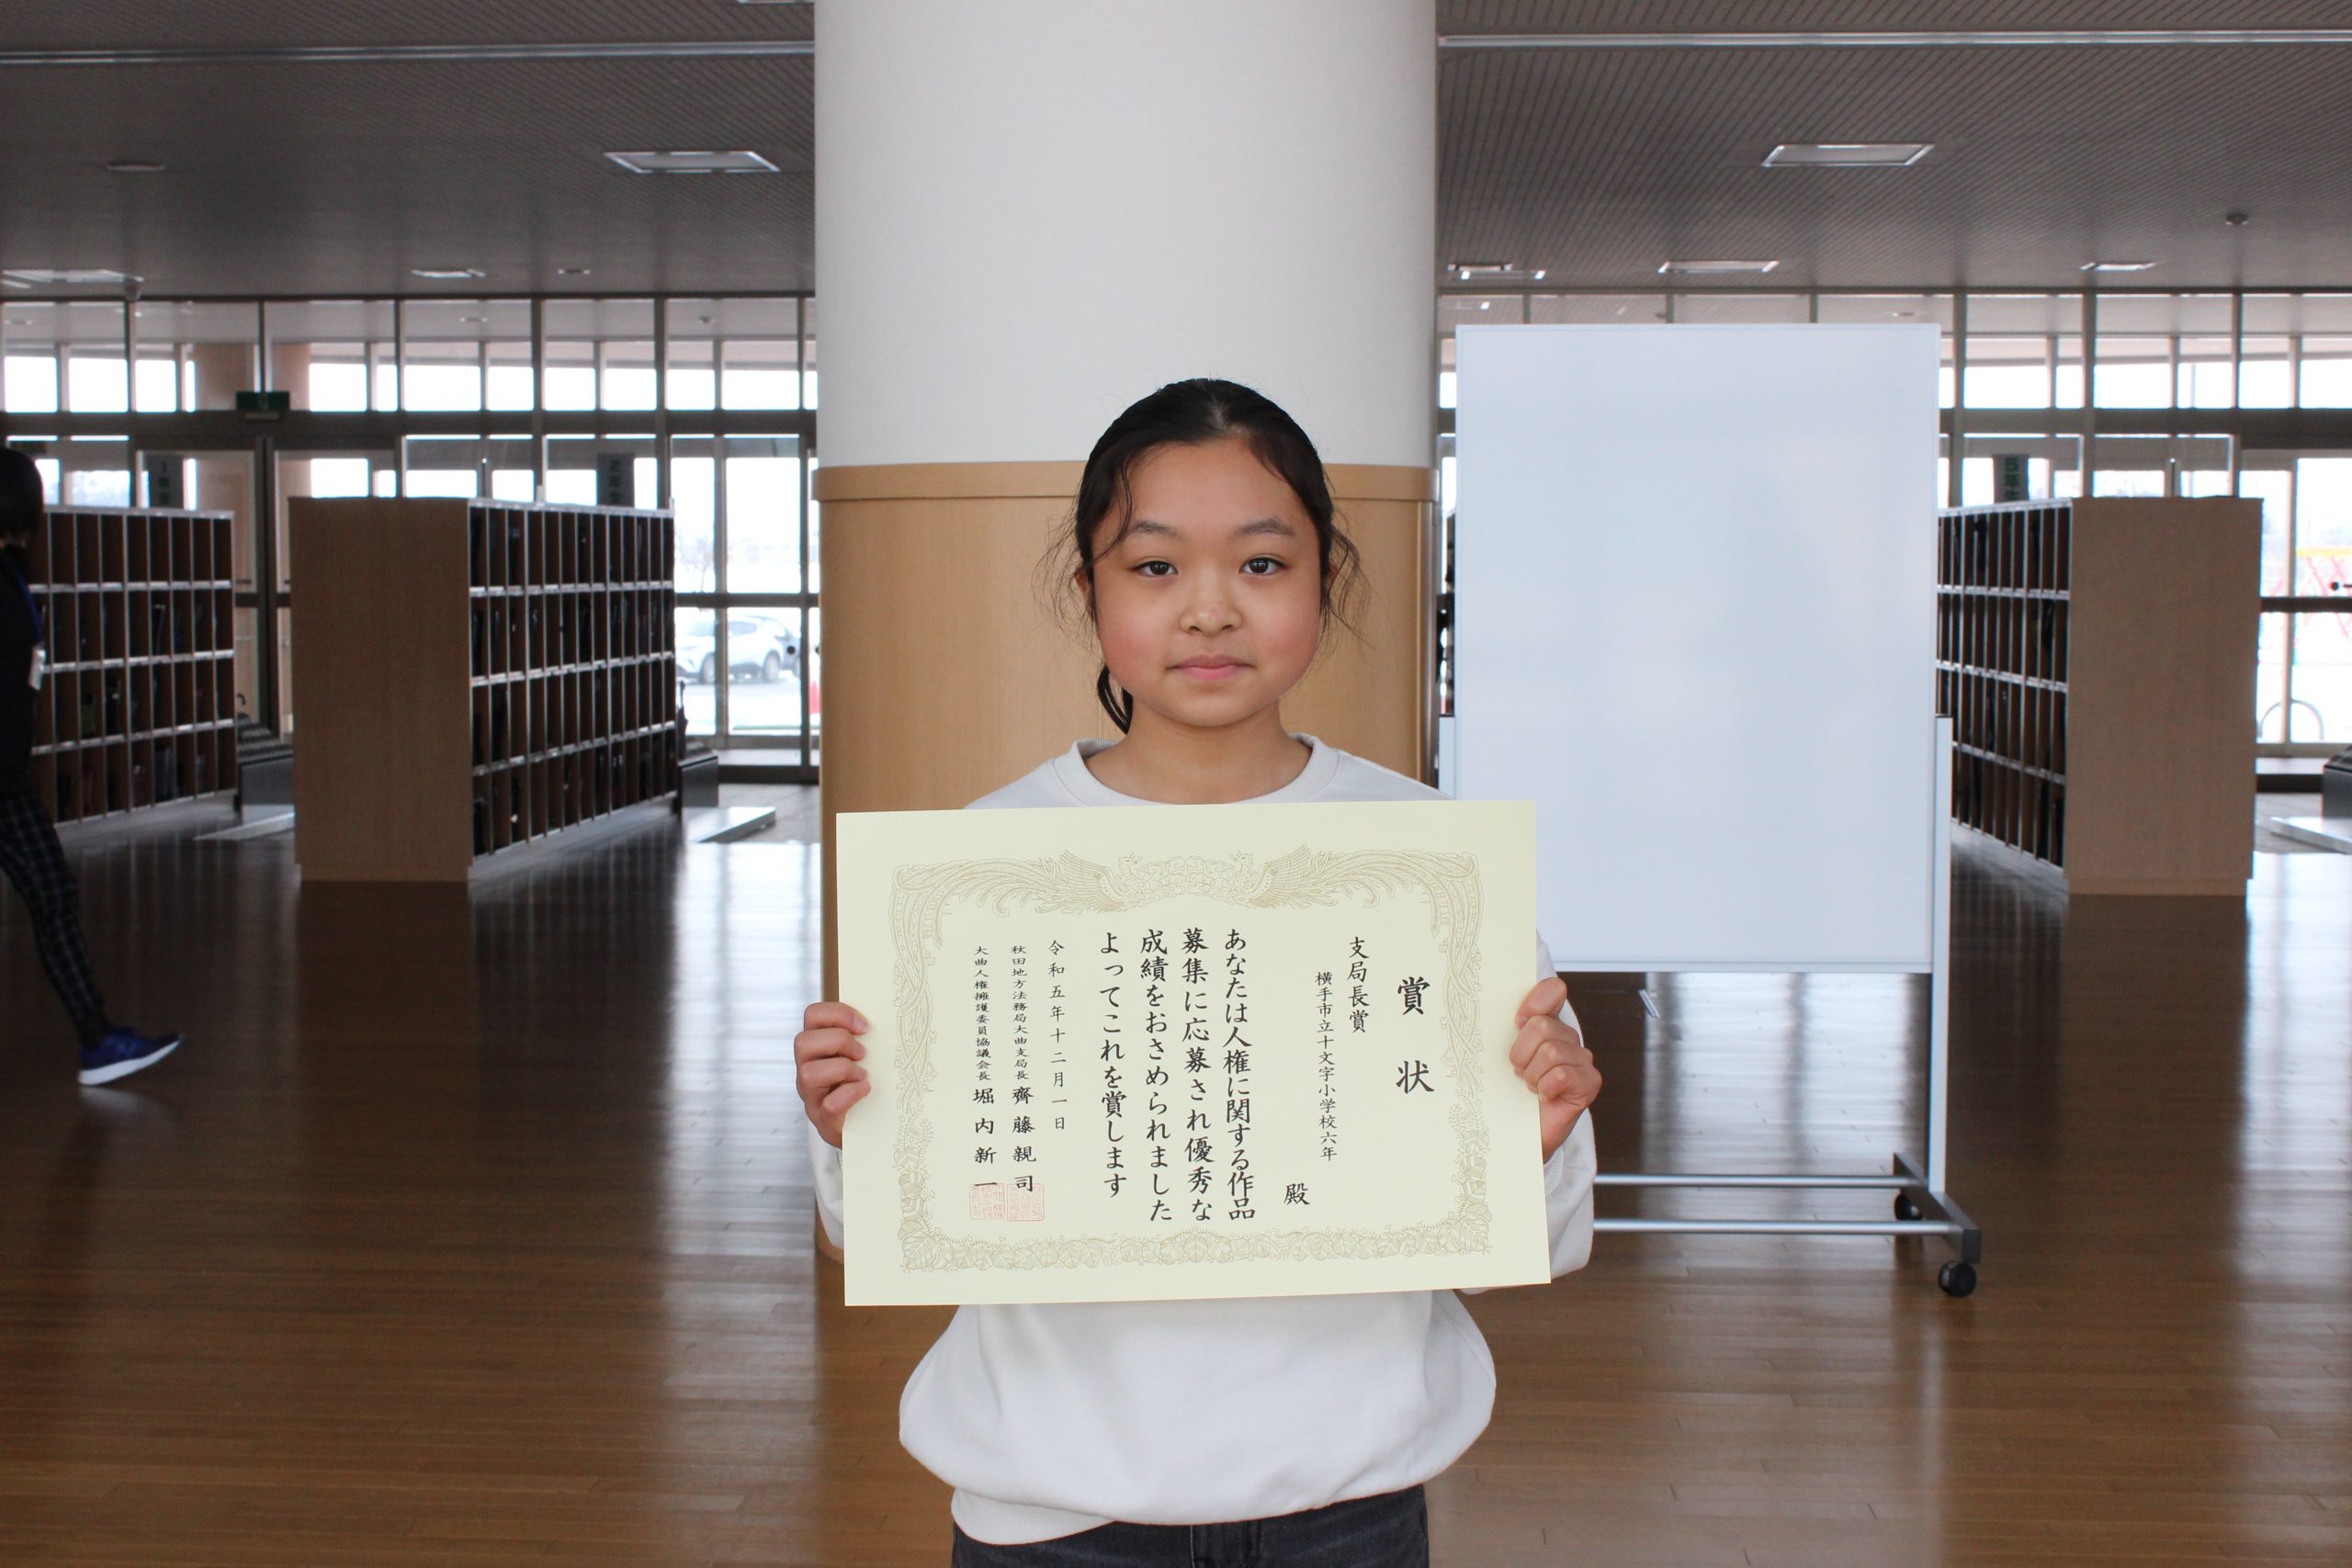 賞状
支局長賞
横手市立十文字小学校六年
殿
あなたは人権に関する作品
募集に応募され優秀な
成績をおさめられました
よってこれを賞します
令和五年十二月一日
秋田地方法務局大曲支局長 齊藤親司
大曲人権擁護委員協議会長 堀内新一